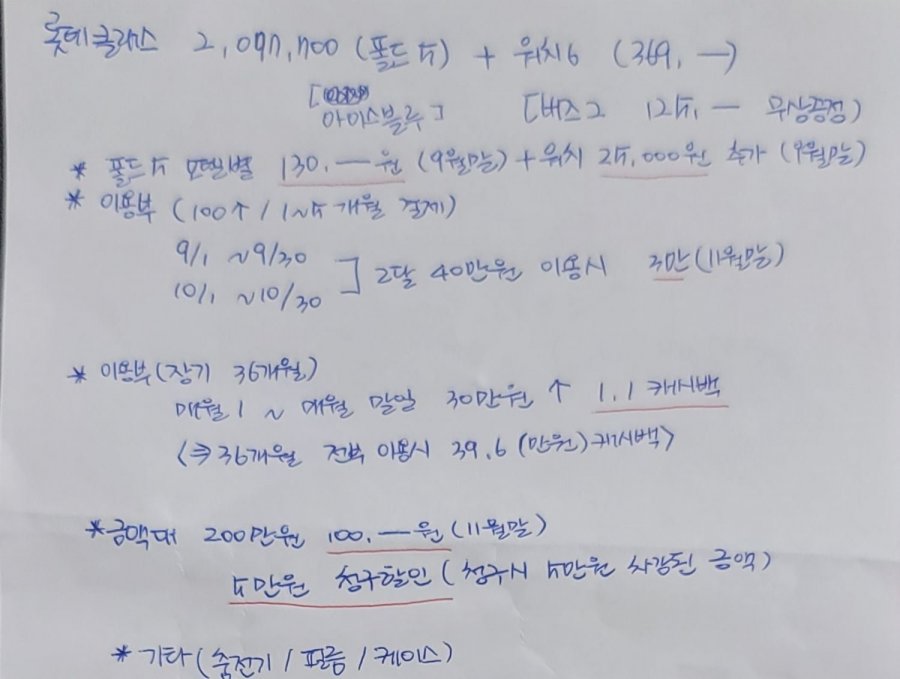 롯데클래스 2,097,700 (폴드5) + 워치6 (369,—)
[아이스블루] [버즈2 125,— 무상증정)
* 폴드5 모델별 130.—원 (9월말) + 워치 25,000원 추가 (9월말)
* 이용부 (100↑ / 1~5개월 결제)
9/1 ~9/30
10/1 ~10/30 ] 2달 40만원 이용시 3만 (11월말)
* 이용부 (장기 36개월)
매월 1 ~ 매월 말일 30만원 ↑ 1.1 캐시백
<⇒ 36개월 전부 이용시 39.6 (만원) 캐시백>
* 금액대 200만원 100.—원 (11월말)
5만원 청구할인 (청구시 5만원 차감된 금액)
* 기타 (충전기 / 필름 / 케이스)